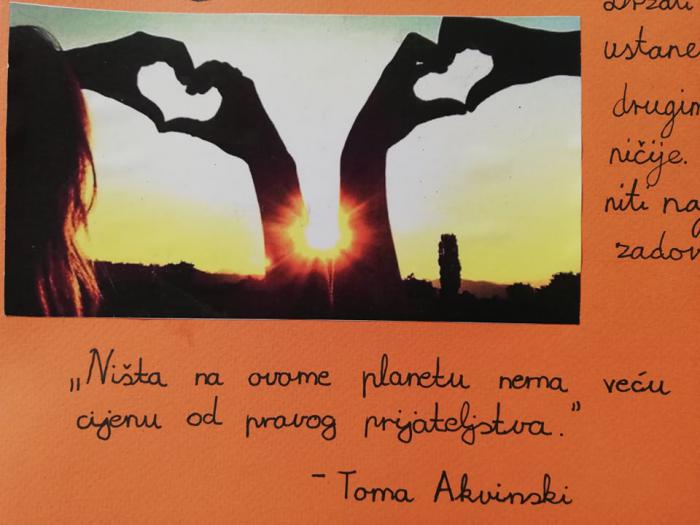 ustane
drugim
ničije.
niti na
zadov
„Ništa na ovome planetu nema veću
cijenu od pravog prijateljstva.”
- Toma Akvinski